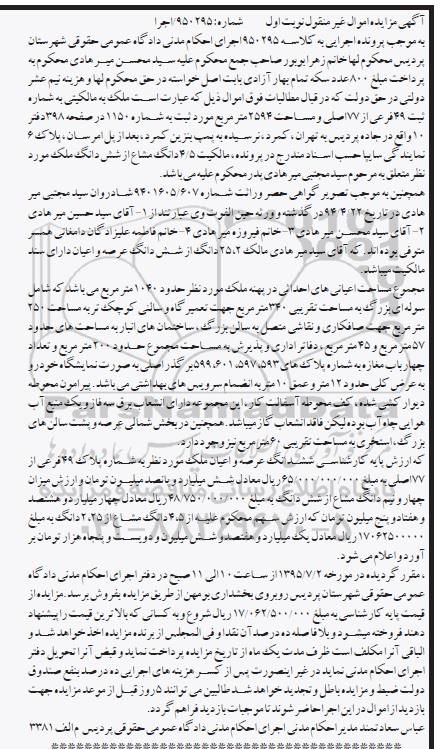 آگهی مزایده اموال غیر منقول نوبت اول شماره: ۹۵۰۲۹۵/اجرا
به موجب پرونده اجرایی به کلاسه ۹۵۰۲۹۵ اجرای احکام مدنی دادگاه عمومی حقوقی شهرستان
پردیس محکوم لها خانم زهرا بویور صاحب جمع محکوم علیه سید محسن میرهادی محکوم به
پرداخت مبلغ ۸۰۰ عدد سکه تمام بهار آزادی بابت اصل خواسته در حق محکوم لها و هزینه نیم عشر
دولتی در حق دولت که در قبال مطالبات فوق اموال ذیل که عبارت است ملک به مالکیتی به شماره
ثبت ۴۹ فرعی از ۷۷ اصلی و مساحت ۲۵۹۴ متر مربع مورد ثبت به شماره ۱۱۵۰ در صفحه ۳۹۸ دفتر
۱۰ واقع در جاده پردیس به تهران، کمرد، نرسیده به پمپ بنزین کمرد، بعد از پل امرسان، پلاک ۶
نمایندگی سایپا حسب اسناد مندرج در پرونده، مالکیت ۴/۵ دانگ مشاع از شش دانگ ملک مورد
نظر متعلق به مرحوم سید مجتبی میرهادی پدر محکوم علیه می باشد.
همچنین به موجب تصویر گواهی حصر وراثت شماره ۹۴۰۱۶۰۵/۶۰۷ شادروان سید مجتبی میر
هادی در تاریخ ۹۴/۴/۲۲ در گذشته و ورثه حین الفوت وی عبارتند از ۱- آقای سید حسین میر هادی
۲- آقای سید محسن میر هادی ۳- خانم فیروزه میر هادی ۴- خانم فاطمه علیزادگان دامغانی همسر
متوفی بوده اند. که آقای سید میر هادی مالک ۲۵،۲ دانگ از شش دانگ عرصه و اعیان دارای سند
مالکیت میباشد.
مجموع مساحت اعیانی های احداثی در پهنه ملک مورد نظر حدود ۱۰۴۰ متر مربع می باشد که شامل
سوله ای بزرگ به مساحت تقریبی ۳۴۰ متر مربع جهت تعمیرگاه و سالنی کوچک تر به مساحت ۲۵۰
متر مربع جهت صافکاری و نقاشی متصل به سالن بزرگ، ساختمان های انبار به مساحت های حدود
۵۷ متر مربع و ۴۵ متر مربع، دفاتر اداری و پذیرش به مساحت مجموع حدود ۲۰۰ متر مربع و تعداد
چهار باب مغازه به شماره پلاک های ۵۹۳، ۵۹۷، ۵۹۹،۶۰۱ بر گذر اصلی به صورت نمایشگاه خودرو و
به عرض کلی حدود ۱۲ متر و عمق ۱۱۰ متر به انضمام سرویس های بهداشتی می باشد. پیرامون محوطه
دیوار کشی شده، کف محوطه آسفالت کار، این مجموعه دارای انشعاب برق سه فاز و یک منبع آب
هوایی چاه آب بوده لیکن فاقد انشعاب گاز میباشد. همچنین در بخش شمالی عرصه و پشت سالن های
بزرگ، استخری به مساحت تقریبی ۶۰ متر مربع نیز وجود دارد.
که ارزش پایه کارشناسی ششدانگ عرصه و اعیان ملک مورد نظر به شماره پلاک ۴۹ فرعی از
۷۷ اصلی به مبلغ ۶۵/۰۰۰/۰۰۰/۰۰۰ ریال معادل شش میلیارد و پانصد میلیون تومان و ارزش میزان
چهار و نیم دانگ مشاع از شش دانگ به مبلغ ۴۸/۷۵۰/۰۰۰/۰۰۰ ریال معادل چهار میلیارد و هشتصد
و هفتاد و پنج میلیون تومان که ارزش سهم محکوم علیه از ۴،۵ دانگ مشاع از ۲،۲۵ دانگ به مبلغ
۱۷۰۶۲۵۰۰۰۰۰ ریال معادل یک میلیارد و هفتصد و شش میلیون و دویست و پنجاه هزار تومان بر
آورد و اعلام می شود.
، مقرر گردیده در مورخه ۱۳۹۵/۷/۲ از ساعت ۱۰ الی ۱۱ صبح در دفتر اجرای احکام مدنی دادگاه
عمومی حقوقی شهرستان پردیس روبروی بخشداری بومهن از طریق مزایده بفروش برسد. مزایده از
قیمت پایه کارشناسی به مبلغ ۱۷/۰۶۲/۵۰۰/۰۰۰ ریال شروع و به کسانی که بالاترین قیمت را پیشنهاد
دهند فروخته میشود و بلافاصله ده درصد آن نقدا و فی المجلس از برنده مزایده اخذ خواهد شد و
الباقی آنرا مکلف است ظرف مدت یک ماه از تاریخ مزایده پرداخت نماید و قبض آنرا تحویل دفتر
اجرای احکام مدنی نماید در غیر اینصورت پس از کسر هزینه های اجرایی ده درصد بنفع صندوق
دولت ضبط و مزایده باطل و تجدید خواهد شد طالبین می توانند ۵ روز قبل از موعد مزایده جهت
بازدید از اموال در این اجرا حاضر شوند تا موجبات بازدید فراهم گردد.
عباس سعادتمند مدیر احکام مدنی اجرای احکام مدنی دادگاه عمومی حقوقی پردیس م الف ۳۳۸۱